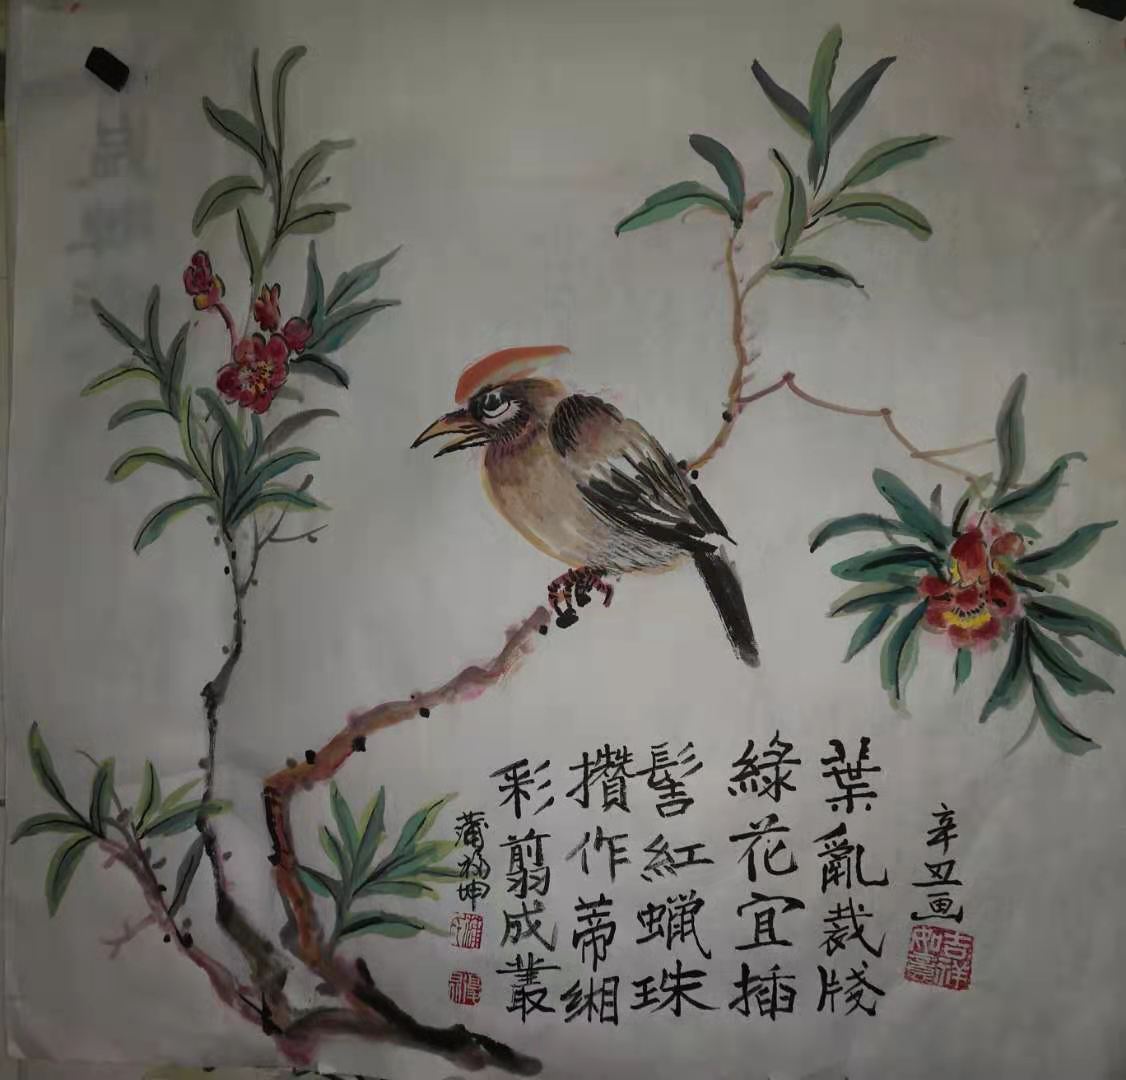 辛丑画
吉祥如意
葉亂裁牋
綠花宜插
髻紅蠟珠
攢作蒂緗
彩翦成叢
蒲 坤